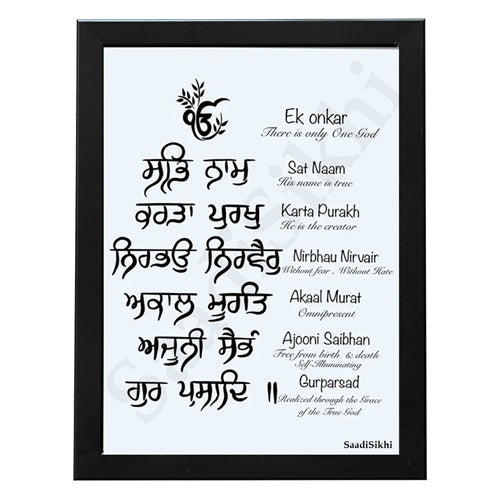 ੴ Ek onkar
There is only One God
ਸਤਿ ਨਾਮੁ Sat Naam
His name is true
ਕਰਤਾ ਪੁਰਖੁ Karta Purakh
He is the creator
ਨਿਰਭਉ ਨਿਰਵੈਰੁ Nirbhau Nirvair
Without fear , Without Hate
ਅਕਾਲ ਮੂਰਤਿ Akaal Murat
Omnipresent
ਅਜੂਨੀ ਸੈਭੰ Ajooni Saibhan
Free from birth & death
Self-Illuminating
ਗੁਰ ਪ੍ਰਸਾਦਿ ॥ Gurparsad
Realized through the Grace
of the True God
SaadiSikhi
SaadiSikhi